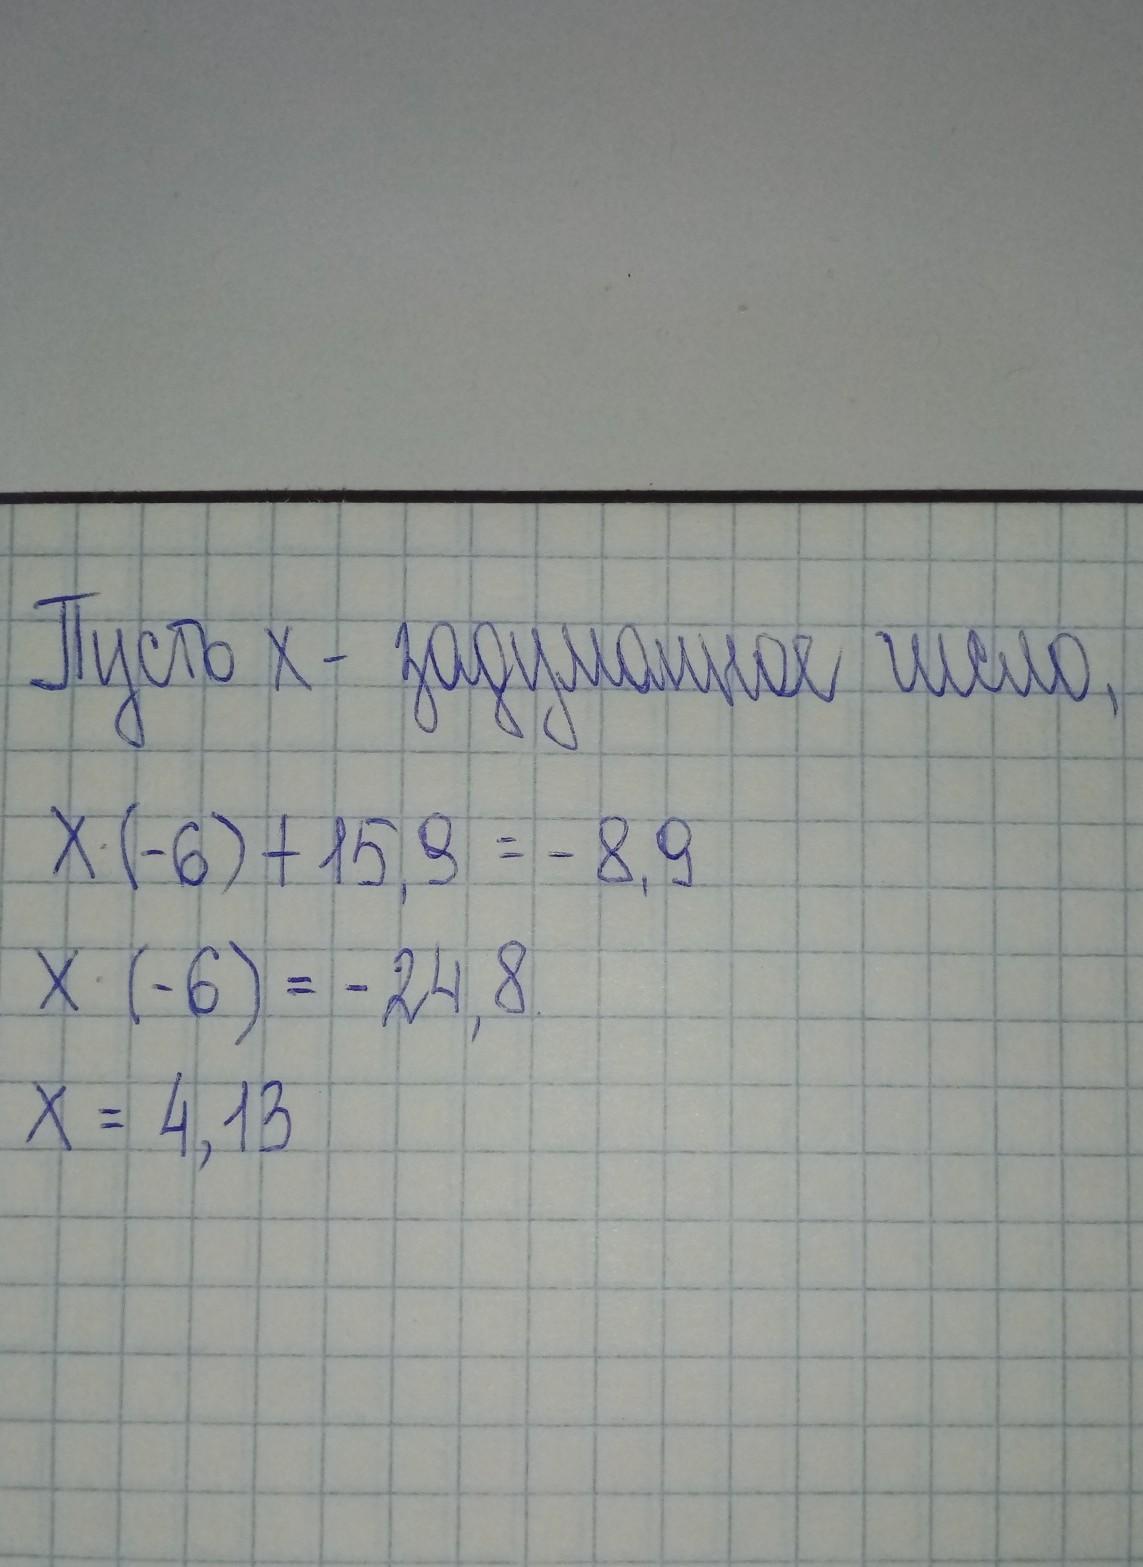 Пусть x - задуманное число,
x·(-6)+15,9 =-8,9
x·(-6)=-24,8
x = 4,13